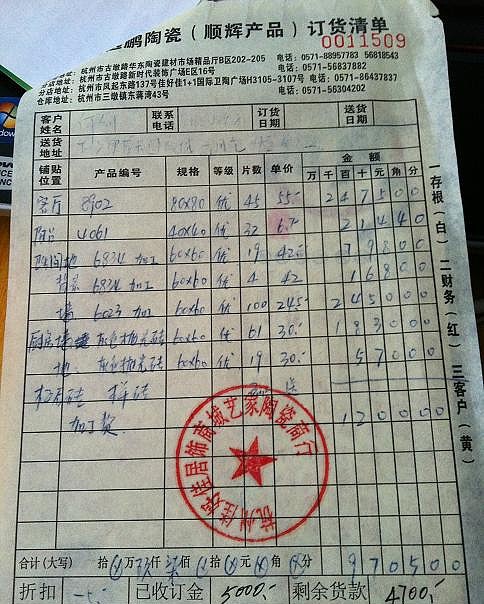 鹏陶瓷（顺辉产品）订货清单
0011509
杭州市古墩路华东陶瓷建材市场精品厅B区202-205 电话：0571-88957783 56818543
分店地址：杭州市古墩路新时代装饰广场E区16号 电话：0571-56837882
分店地址：杭州市凤起东路137号佳好佳1+1国际卫陶广场H3105-3107号 电话：0571-86437837
仓库地址：杭州市三墩镇东蒋湾43号 电话：0571-56304202
客户姓名 联系电话 订货日期 送货日期
送货地址
铺贴位置 产品编号 规格 等级 片数 单价 金额
万 千 百 十 元 角 分
客厅 8902 80x80 优 45 55 2 4 7 5 0 0
阳台 4061 40x40 优 32 6.7 2 1 4 4 0
地 6834 加工 60x60 优 19 42 7 9 8 0 0
6834 加工 60x60 优 4 42 1 6 8 0 0
墙 6023 加工 60x60 优 100 24.5 2 4 5 0 0 0
厨房墙 抛光砖 60x60 优 61 30 1 8 3 0 0 0
地 抛光砖 60x60 优 19 30 5 7 0 0 0
样砖 送
加工费 1 2 0 0 0 0
合计（大写） 拾 万 仟 柒 佰 拾 元 角 分 9 7 0 5 0 0
折扣 -5 已收订金 5000 剩余货款 4700
一存根（白） 二财务（红） 三客户（黄）
杭州佳好佳居饰商城艺家陶瓷商行